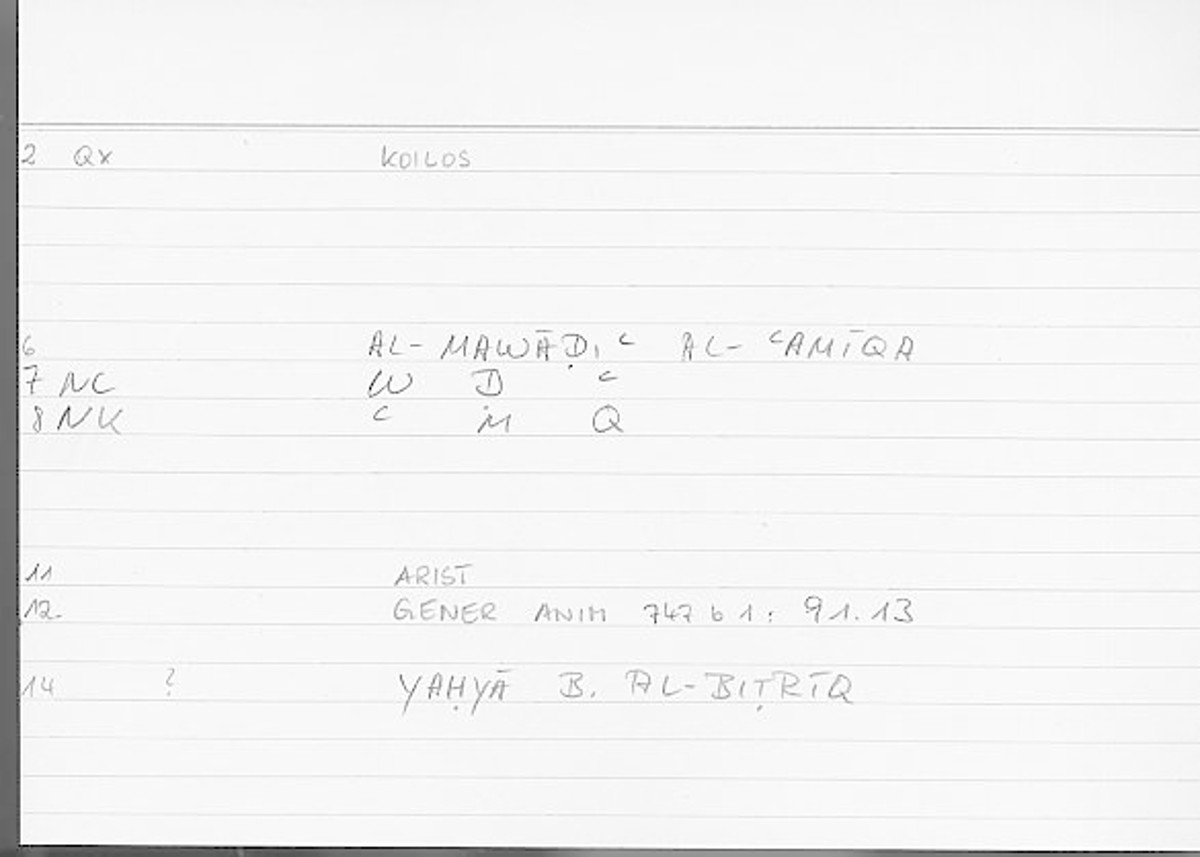 2 QX KOILOS
6 AL-MAWĀḌIʿ AL-ʿAMĪQA
7 NC W D ʿ
8 NK ʿ M Q
11 ARIST
12. GENER ANIM 747 b 1 : 91.13
14 ? YAḤYĀ B. AL-BIṬRĪQ